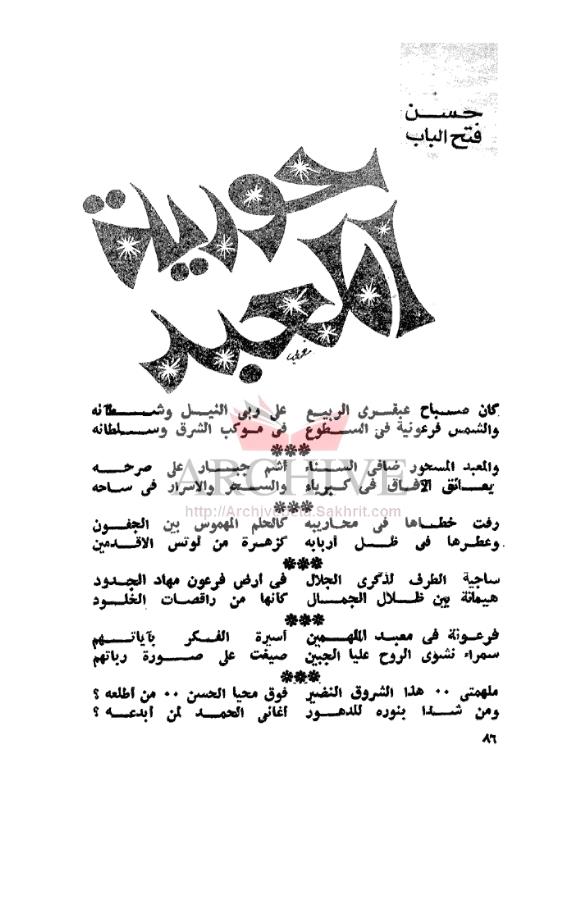 حسن
فتح الباب
حورية
المعبد
كان صباح عبقرى الربيع على ربى النيل وشطانه
والشمس فرعونية فى السطوع فى موكب الشرق وسلطانه
***
والمعبد المسحور صافى السناء أشم جبار على صرحه
يعانق الآفاق فى كبرياء والسحر والاسرار فى ساحه
ARCHIVE
http://Archivebeta.Sakhrit.com
***
رفت خطاها فى محاريبه كالحلم المهموس بين الجفون
وعطرها فى ظل أربابه كزهرة من لوتس الاقدمين
***
ساجية الطرف لذكرى الجلال فى أرض فرعون مهاد الجدود
هيمانة بين ظلال الجمال كأنها من راقصات الخلود
***
فرعونة فى معبد الملهمين أسيرة الفكر بآياتهم
سمراء نشوى الروح عليا الجبين صيغت على صورة رباتهم
***
ملهمتى ٠٠ هذا الشروق النضير فوق محيا الحسن ٠٠ من أطلعه ؟
ومن شدا بنوره للدهور أغانى الحمد لمن أبدعه ؟
٨٦